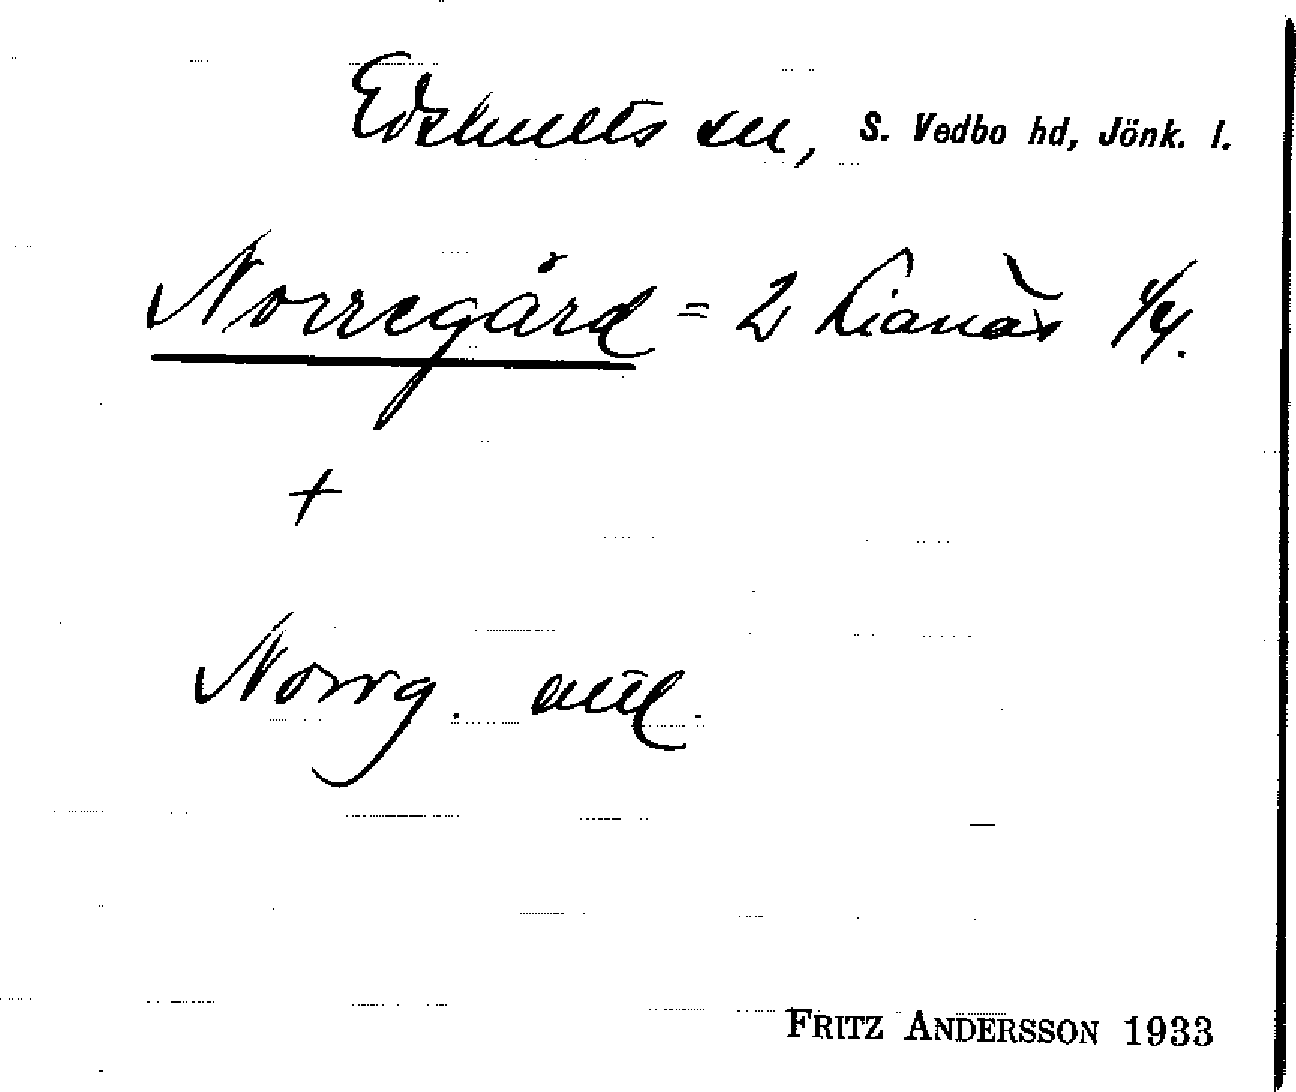 Edshults sn, S. Vedbo hd, Jönk. l.
Norregård = 2 Lianäs 1/4.
+
Norrg.
FRITZ ANDERSSON 1933